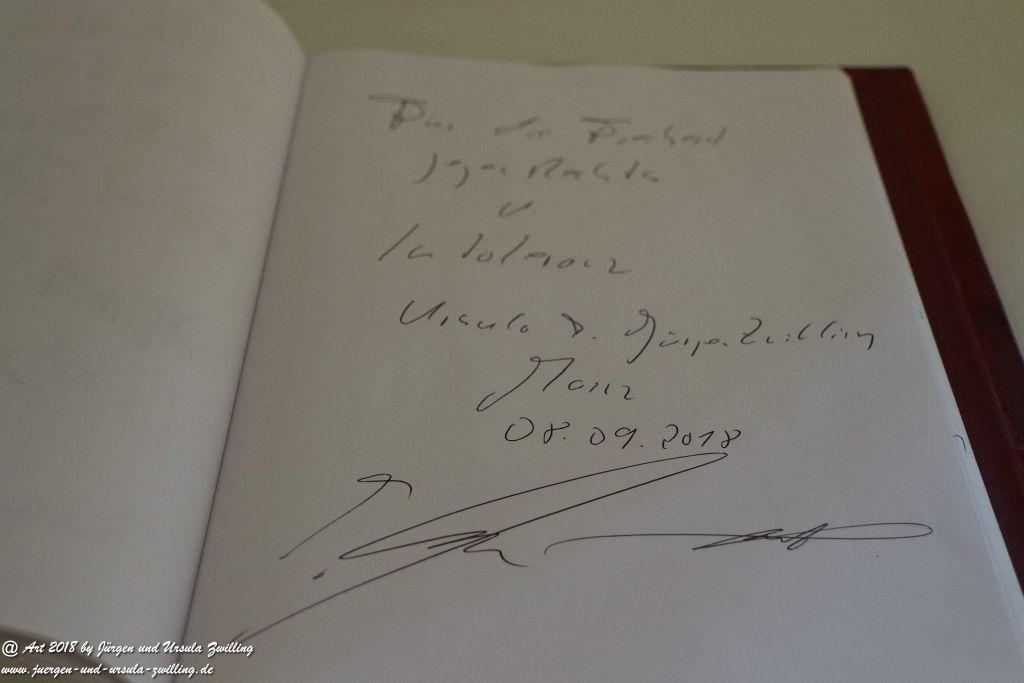 Für die Freiheit
gegen Rechts
u.
Intoleranz
Ursula & Jürgen Zwilling
Mainz
08.09.2018
@ Art 2018 by Jürgen und Ursula Zwilling
www.juergen-und-ursula-zwilling.de